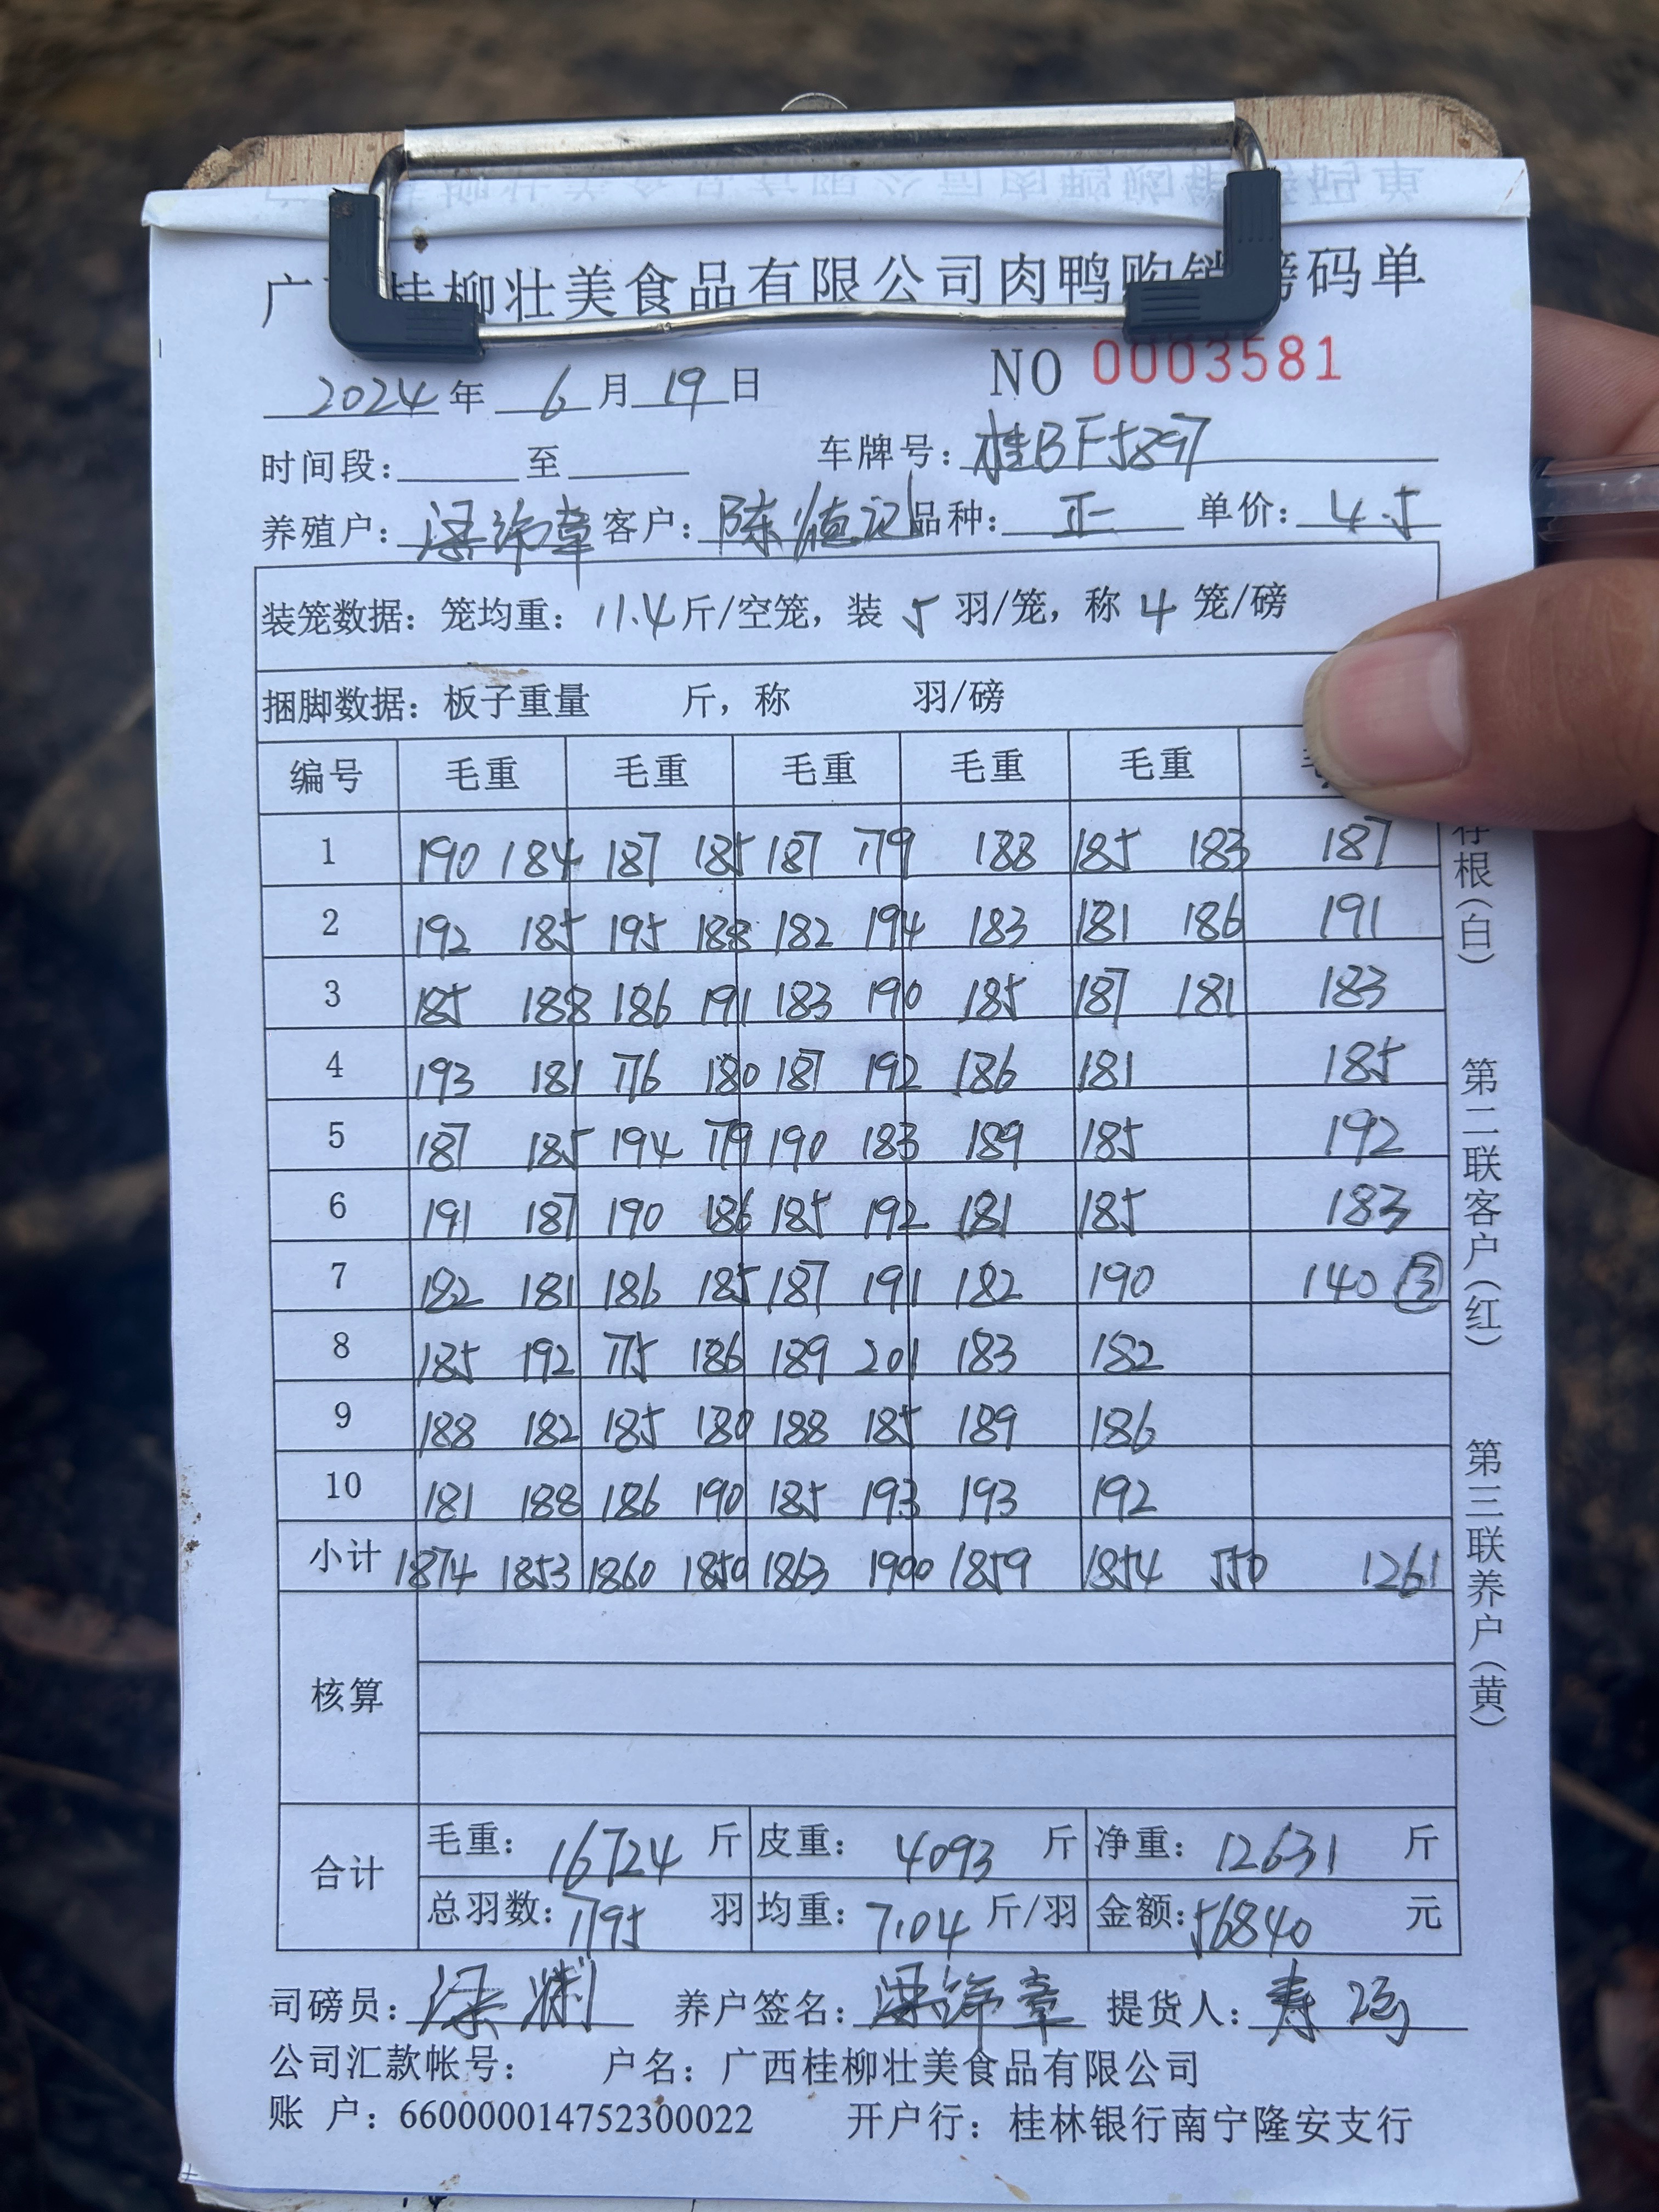 广 桂柳壮美食品有限公司肉鸭购销磅码单
NO 0003581
2024年 6月19日
时间段: 至 车牌号: 桂BF5897
养殖户: 梁 章 客户: 陈 记 品种: 正 单价: 4.5
装笼数据: 笼均重: 11.4斤/空笼, 装 5 羽/笼, 称 4 笼/磅
捆脚数据: 板子重量 斤, 称 羽/磅
编号 毛重 毛重 毛重 毛重 毛重
1 190 184 187 185 187 179 188 185 183 187
2 192 185 195 188 182 194 183 181 186 191
3 185 188 186 191 183 190 185 187 181 183
4 193 181 176 180 187 192 186 181 185
5 187 185 194 179 190 183 189 185 192
6 191 187 190 186 185 192 181 185 183
7 182 181 186 185 187 191 182 190 140 ③
8 185 192 175 186 189 201 183 182
9 188 182 185 180 188 185 189 186
10 181 188 186 190 185 193 193 192
小计 1874 1853 1860 1850 1863 1900 1859 1854 550 1261
核算
合计 毛重: 16724 斤 皮重: 4093 斤 净重: 12631 斤
总羽数: 1795 羽 均重: 7.04 斤/羽 金额: 56840 元
司磅员: 梁 养户签名: 梁 章 提货人:
公司汇款帐号: 户名: 广西桂柳壮美食品有限公司
账 户: 660000014752300022 开户行: 桂林银行南宁隆安支行
存根(白) 第二联客户(红) 第三联养户(黄)